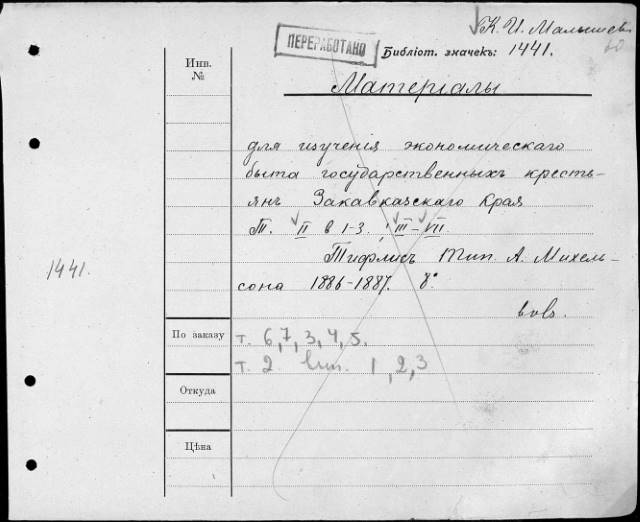 К. И. Малышев
ПЕРЕРАБОТАНО
Библіот. значекъ: 1441.
Инв.
№
Матеріалы
для изученія экономическаго
быта государственныхъ кресть-
янъ Закавказскаго Края
Т. II в 1-3, III-VII.
Тифлисъ Тип. А. Михель-
1441.
сона 1886-1887. 8°
По заказу
т. 6,7,3,4,5.
т. 2 вып. 1,2,3
Откуда
Цѣна